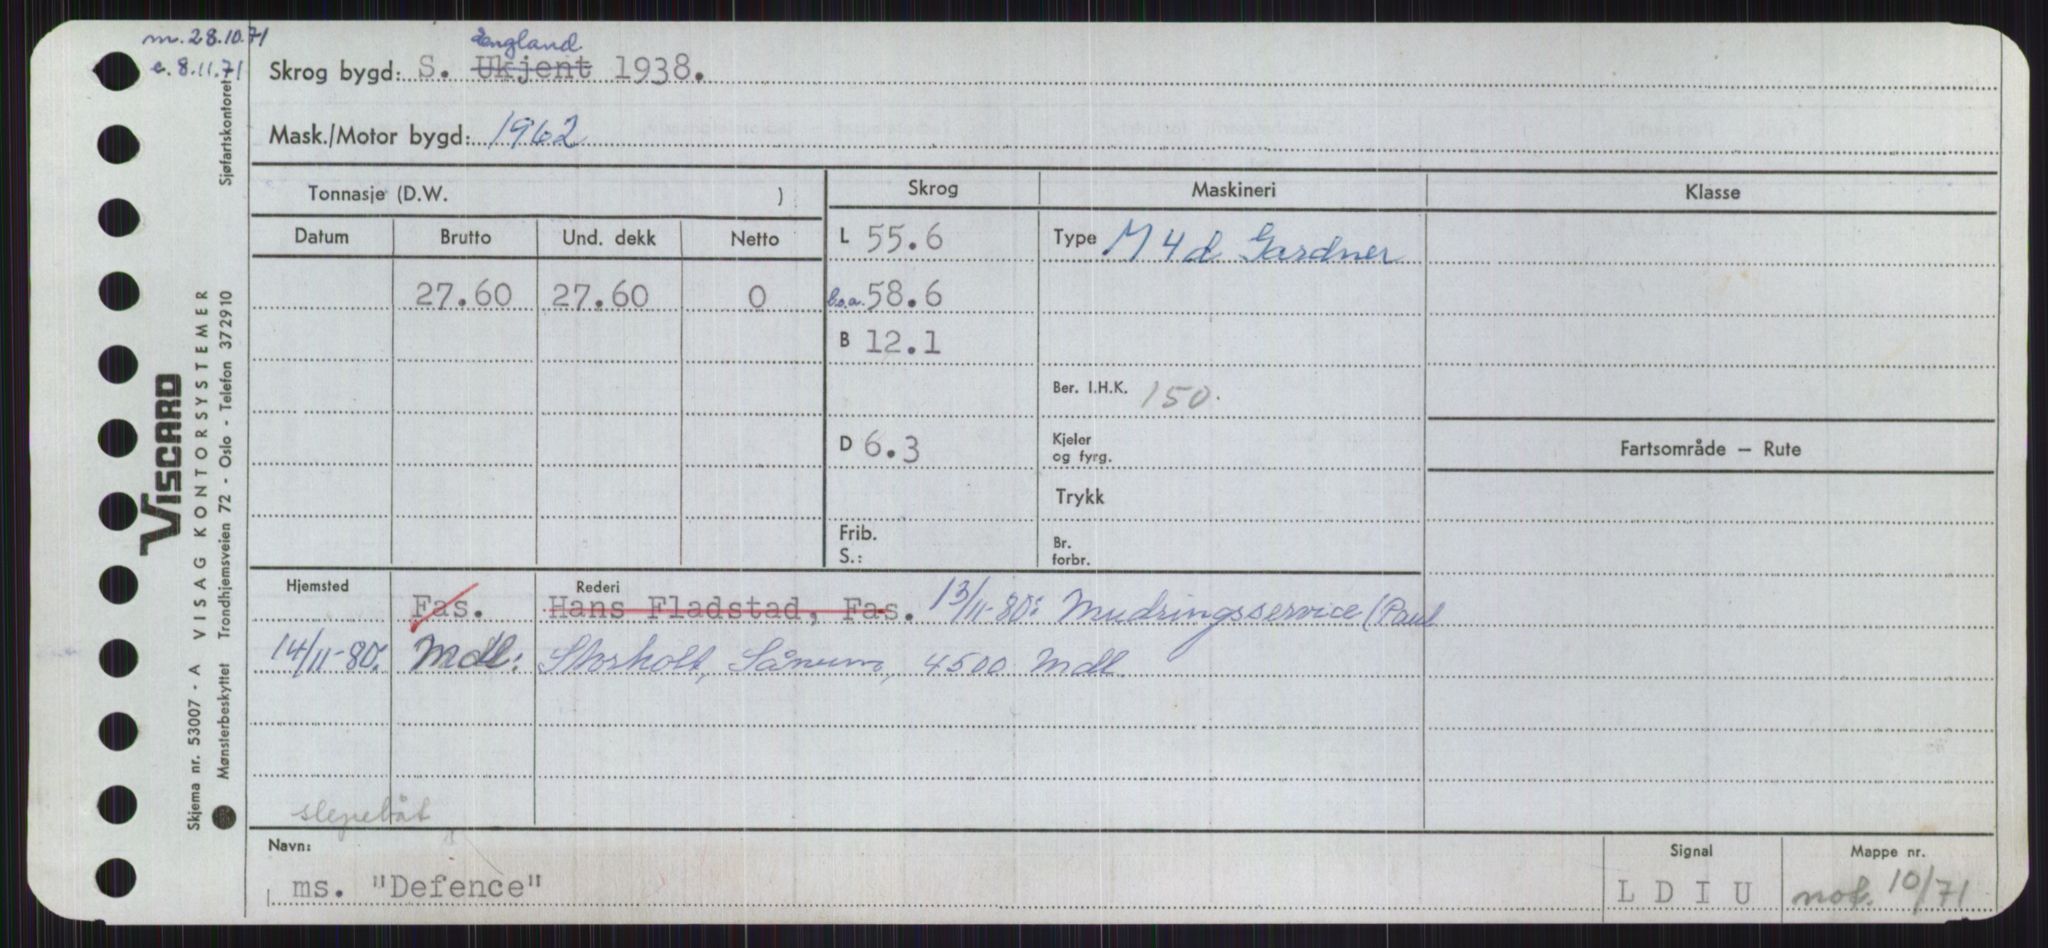 m. 28.10.71
e. 8.11.71
England
Skrog bygd: S. Ukjent 1938.
Mask./Motor bygd: 1962
Tonnasje (D.W. )
Skrog Maskineri Klasse
Datum Brutto Und. dekk Netto
L 55.6 Type M 4 d Gardner
27.60 27.60 0
b.o.a. 58.6
B 12.1
Ber. I.H.K. 150.
D 6.3 Kjeler og fyrg.
Fartsområde — Rute
Trykk
Frib.
S.:
Br. forbr.
Hjemsted Rederi
Fas. Hans Fladstad, Fas. 13/11-80: Mudringsservice (Paul
14/11-80: Mdl: Storholt, 4500 Mdl.
slepebåt
Navn: Signal Mappe nr.
ms. "Defence" L D I U 10/71
Sjøfartskontoret
Viscard
VISAG KONTORSYSTEMER
Skjema nr. 53007 - A
Mønsterbeskyttet Trondhjemsveien 72 - Oslo - Telefon 372910